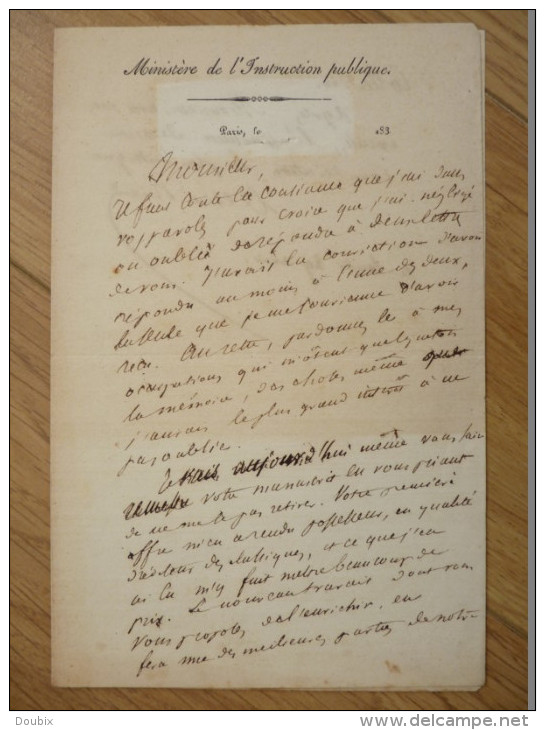 Ministère de l'Instruction publique.
Paris, le 183
Monsieur,
Il faut toute la confiance que j'ai dans
vos paroles pour croire que j'ai négligé
ou oublié de répondre à deux lettres
de vous. J'aurais la conviction d'avoir
répondu au moins à l'une des deux,
la seule que je me souvienne d'avoir
reçu. Au reste, pardonnez le à mes
occupations qui m'ôtent quelquefois
la mémoire, des choses même
j'aurais le plus grand intérêt à ne
pas oublier.
Je aujourd'hui même vous faire
votre manuscrit en vous priant
de ne me le pas retirer. Votre première
offre m'en a rendu possesseur, en qualité
d'éditeur des, et ce que j'en
ai lu m'y fait mettre beaucoup de
prix. Le nouveau travail dont vous
vous proposez de l'enrichir, en
fera une des meilleures parties de notre
Doubix
delcampe.net